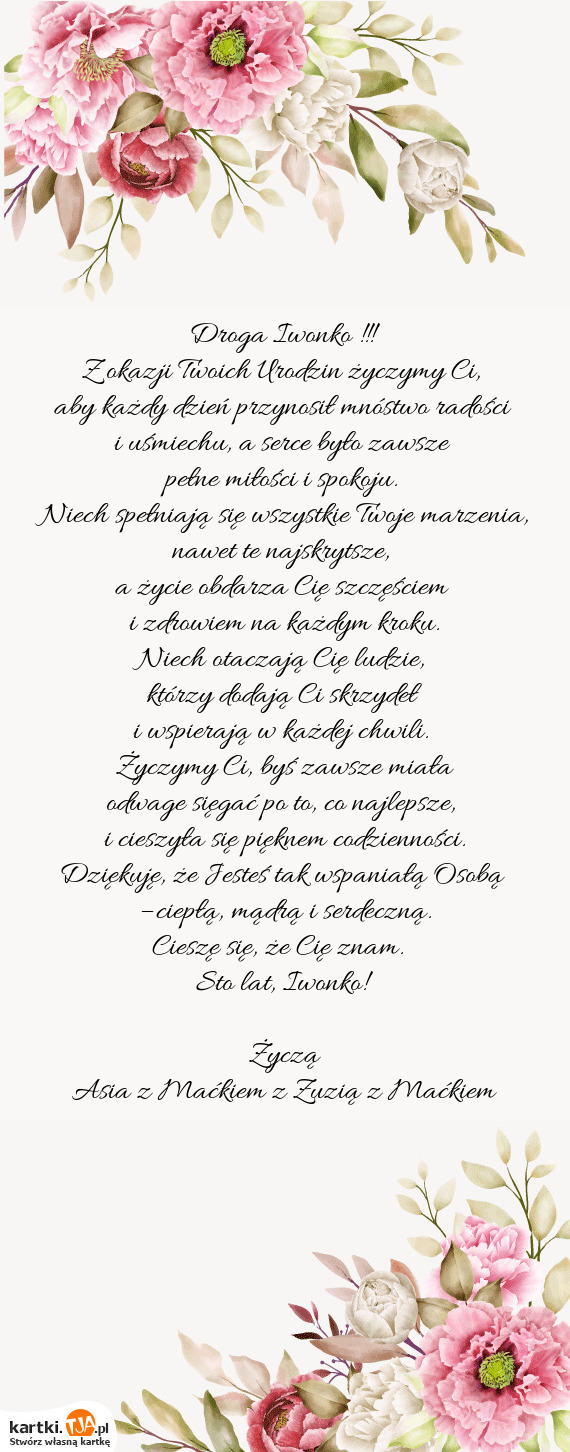 Droga Iwonko !!!
Z okazji Twoich Urodzin życzymy Ci,
aby każdy dzień przynosił mnóstwo radości
i uśmiechu, a serce było zawsze
pełne miłości i spokoju.
Niech spełniają się wszystkie Twoje marzenia,
nawet te najskrytsze,
a życie obdarza Cię szczęściem
i zdrowiem na każdym kroku.
Niech otaczają Cię ludzie,
którzy dodają Ci skrzydeł
i wspierają w każdej chwili.
Życzymy Ci, byś zawsze miała
odwage sięgać po to, co najlepsze,
i cieszyła się pięknem codzienności.
Dziękuję, że Jesteś tak wspaniałą Osobą
–ciepłą, mądrą i serdeczną.
Cieszę się, że Cię znam.
Sto lat, Iwonko!
Życzą
Asia z Maćkiem z Zuzią z Maćkiem
kartki.TJA.pl
Stwórz własną kartkę